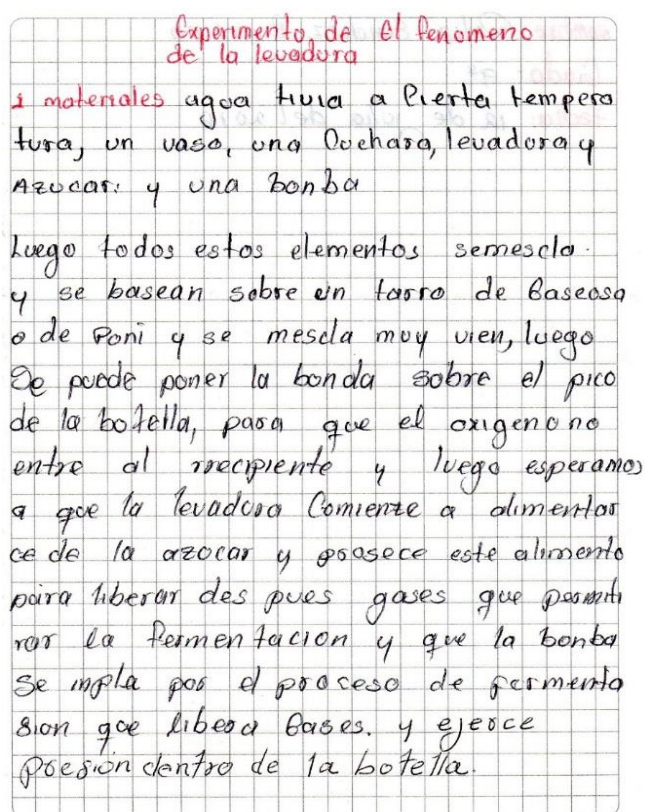 Experimento de El fenomeno
de la levadura
1 materiales agua tivia a Cierta tempera
tura, un vaso, una Cuchara, levadura y
Azucar. y una bonba
Luego todos estos elementos semescla.
y se basean sobre un tarro de Gaseosa
o de Poni y se mescla muy vien, luego
Se puede poner la bonda sobre el pico
de la botella, para que el oxigeno no
entre al rrecipiente y luego esperamos
a que la levadura Comienze a alimentar
ce de la azocar y prosece este alimento
para liberar des pues gases que permiti
rar la fermentacion y que la bonba
Se inpla por el proceso de fermenta
sion que libera Gases. y ejerce
presion dentro de la botella.